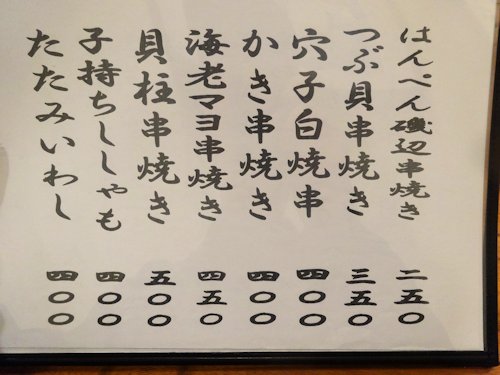 はんぺん磯辺串焼き 二五〇
つぶ貝串焼き 三五〇
穴子白焼串 四〇〇
かき串焼き 四〇〇
海老マヨ串焼き 四五〇
貝柱串焼き 五〇〇
子持ちししゃも 四〇〇
たたみいわし 四〇〇